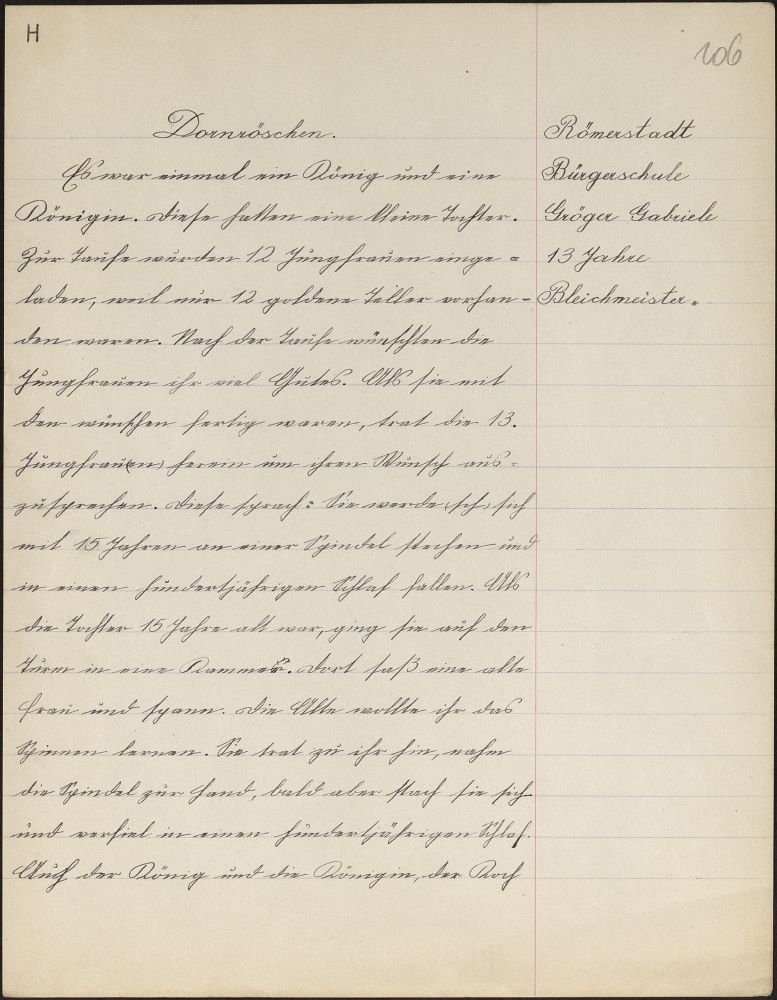 H
106
Dornröschen.
Es war einmal ein König und eine
Königin. Diese hatten eine kleine Tochter.
Zur Taufe wurden 12 Jungfrauen einge=
laden, weil nur 12 goldene Teller vorhan-
den waren. Nach der Taufe wünschten die
Jungfrauen ihr viel Gutes. Als sie mit
den wünschen fertig waren, trat die 13.
Jungfrau(en) herein um ihren Wunsch aus=
zusprechen. Diese sprach: Sie werde (sch) sich
mit 15 Jahren an einer Spindel stechen und
in einen hundertjährigen Schlaf fallen. Als
die Tochter 15 Jahre alt war, ging sie auf den
Turm in eine Kammer. Dort saß eine alte
Frau und spann. Die Alte wollte ihr das
Spinnen lernen. Sie trat zu ihr hin, nahm
die Spindel zur Hand, bald aber stach sie sich
und verfiel in einen hundertjährigen Schlaf.
Auch der König und die Königin, der Koch
Römerstadt
Bürgerschule
Gröger Gabriele
13 Jahre
Bleichmeister.